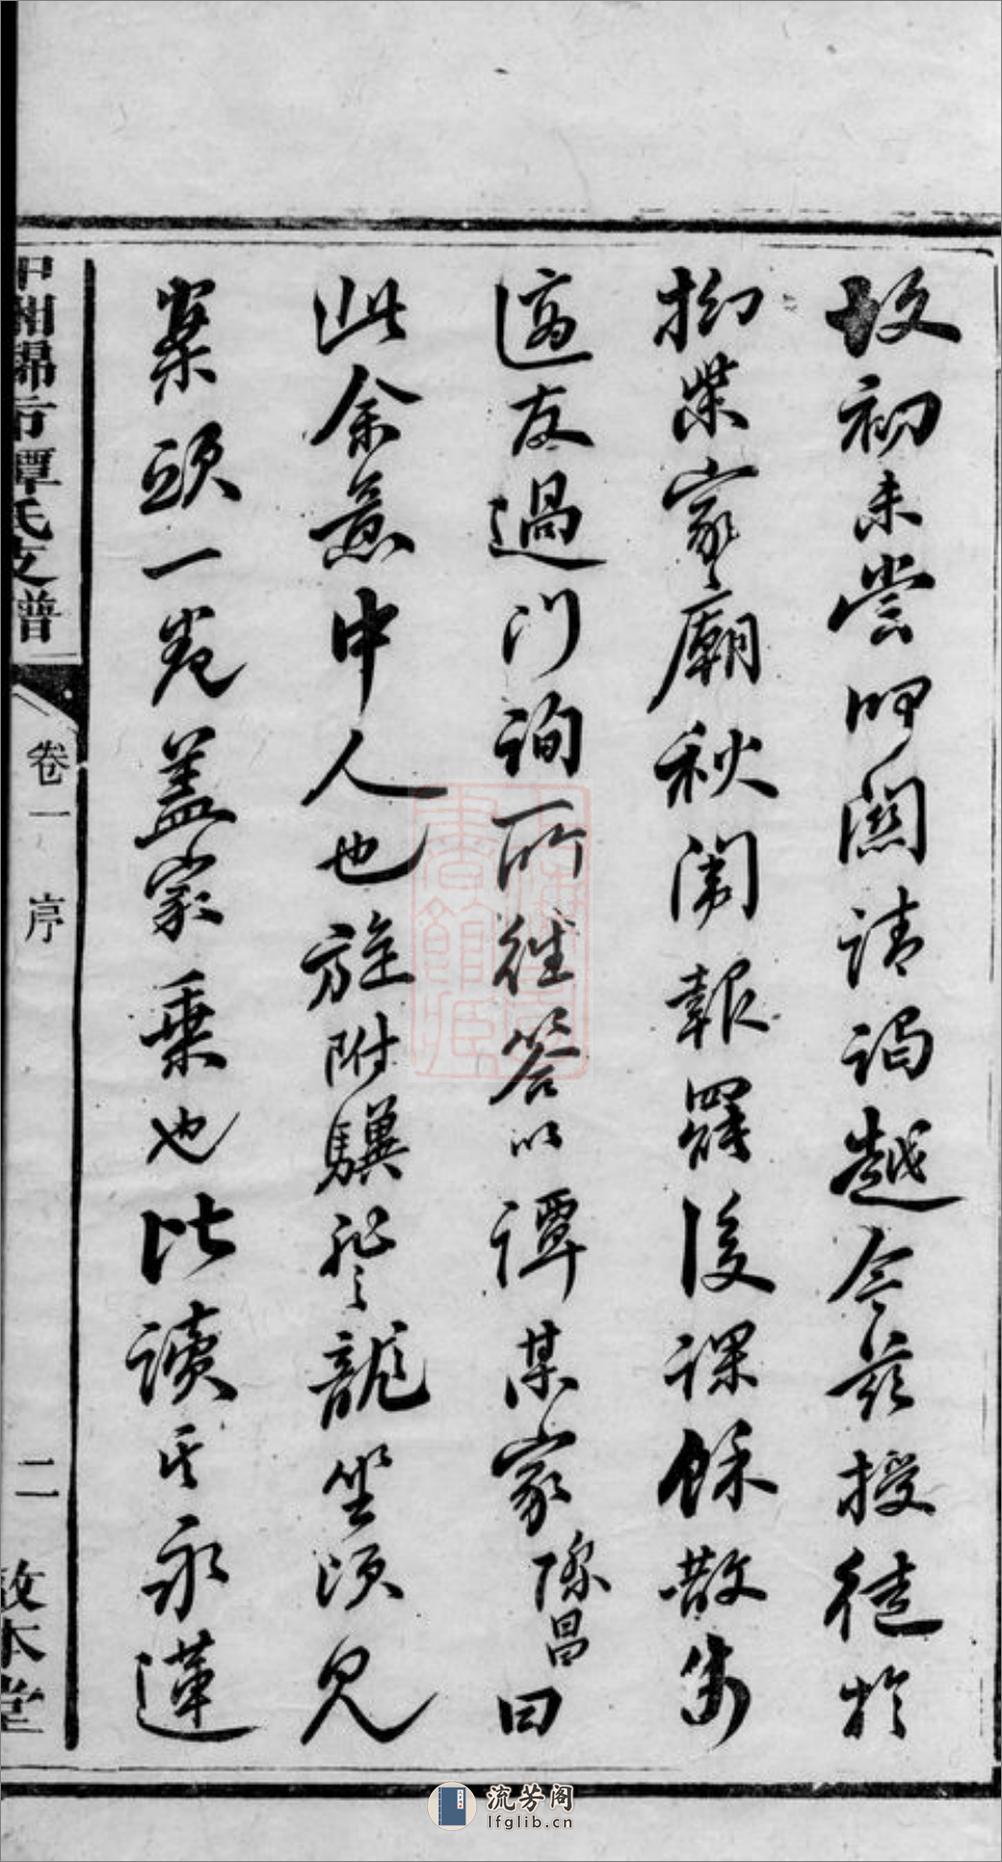 故初未嘗叩闕請謁越今茲授徒於
柳柴家廟秋闈報罷後課餘散步
適友過門詢所往答以譚某家際昌曰
此余意中人也旋附驥登龍坐次見
案頭一卷蓋家乘也比讀其永蓮
譚氏支譜
卷一 序
二 敦本堂
流芳阁
lfglib.cn